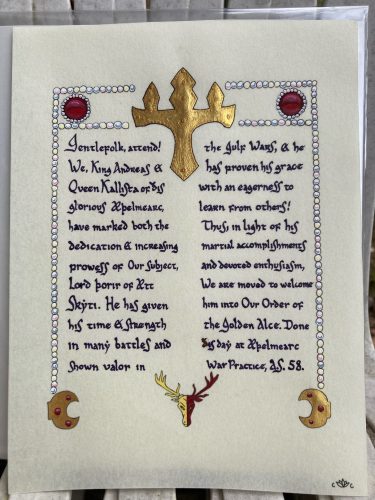 Gentlefolk, attend!
We, King Andreas &
Queen Kallista of þis
glorious Æþelmearc,
have marked both the
dedication & increasing
prowess of Our Subject,
Lord Þorir of Ætt
Skyti. He has given
his time & strength
in many battles and
shown valor in
the Gulf Wars, & he
has proven his grace
with an eagerness to
learn from others!
Thus, in light of his
martial accomplishments
and devoted enthusiasm,
We are moved to welcome
him into Our Order of
the Golden Alce. Done
þis day at Æþelmearc
War Practice, A.S. 58.
C C